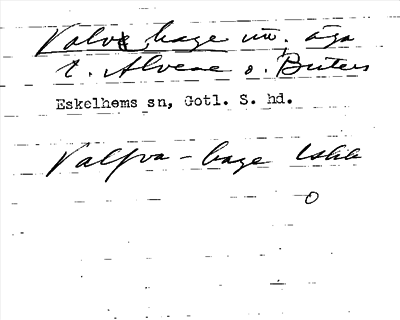 Valve hage nu. äga
t. Alvene o. Buters
Eskelhems sn, Gotl. S. hd.
Valfva-hage